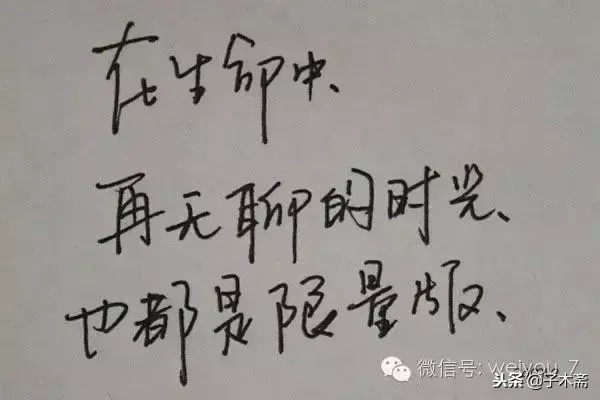 在生命中、
再无聊的时光、
也都是限量版、
微信号: weiyou_7
头条@子木斋